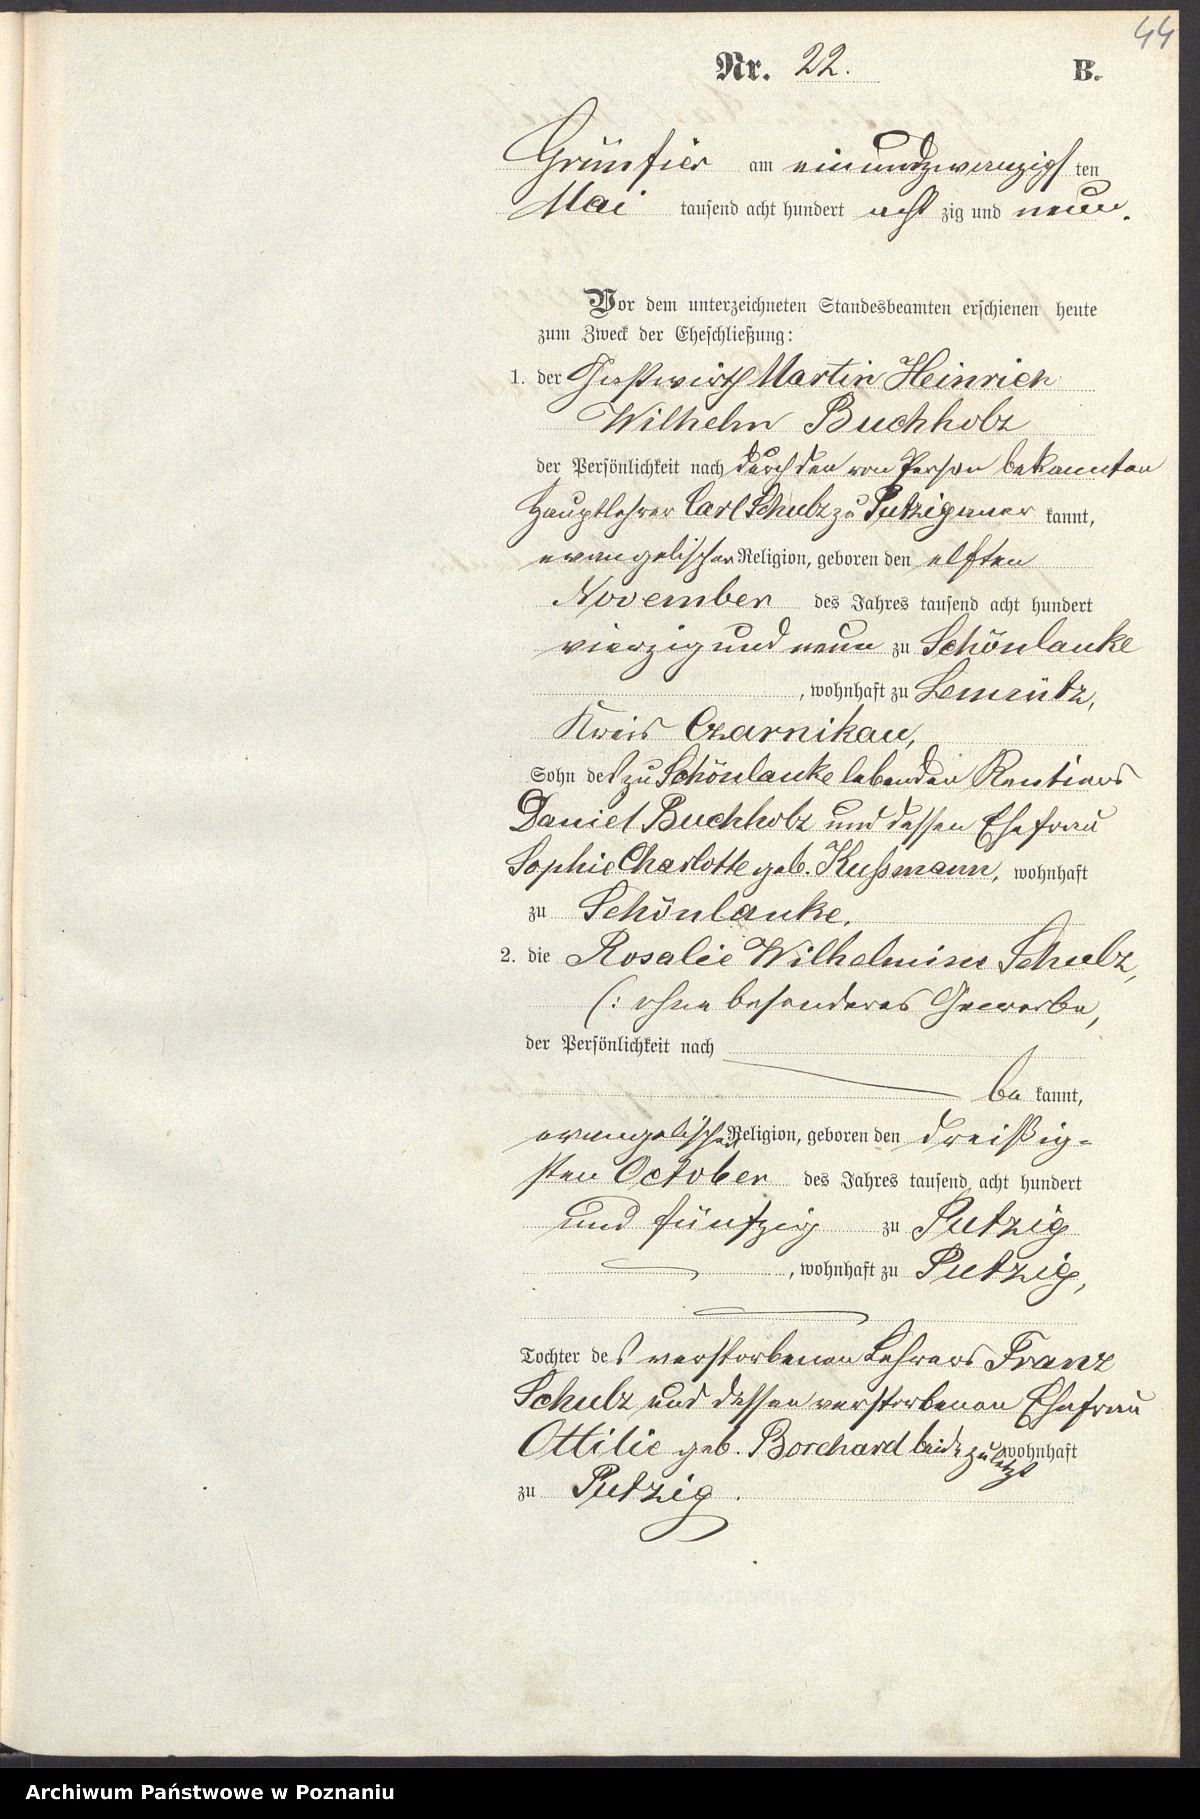 44
Nr. 22. B.
Grünfier am einundzwanzigsten
Mai tausend acht hundert achtzig und neun.
Vor dem unterzeichneten Standesbeamten erschienen heute
zum Zweck der Eheschließung:
1. der Gastwirth Martin Heinrich
Wilhelm Buchholz
der Persönlichkeit nach durch den von Person bekannten
Hauptlehrer Carl Schulz zu Putzig aner kannt,
evangelischer Religion, geboren den elften
November des Jahres tausend acht hundert
vierzig und neun zu Schönlanke
, wohnhaft zu Lemnitz,
Kreis Czarnikau,
Sohn des zu Schönlanke lebenden Rentiers
Daniel Buchholz und dessen Ehefrau
Sophie Charlotte geb. Kußmann, wohnhaft
zu Schönlanke.
2. die Rosalie Wilhelmine Schulz,
(: ohne besonderes Gewerbe,
der Persönlichkeit nach
be kannt,
evangelischer Religion, geboren den dreißig-
sten October des Jahres tausend acht hundert
und fünfzig zu Putzig
, wohnhaft zu Putzig,
Tochter des verstorbenen Lehrers Franz
Schulz und dessen verstorbenen Ehefrau
Ottilie geb. Borchard beide zuletzt wohnhaft
zu Putzig.
Archiwum Państwowe w Poznaniu